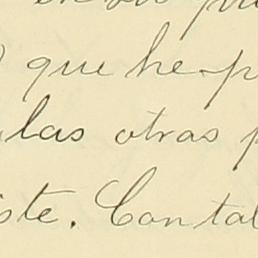 que he p
las otras p
ste. Contal